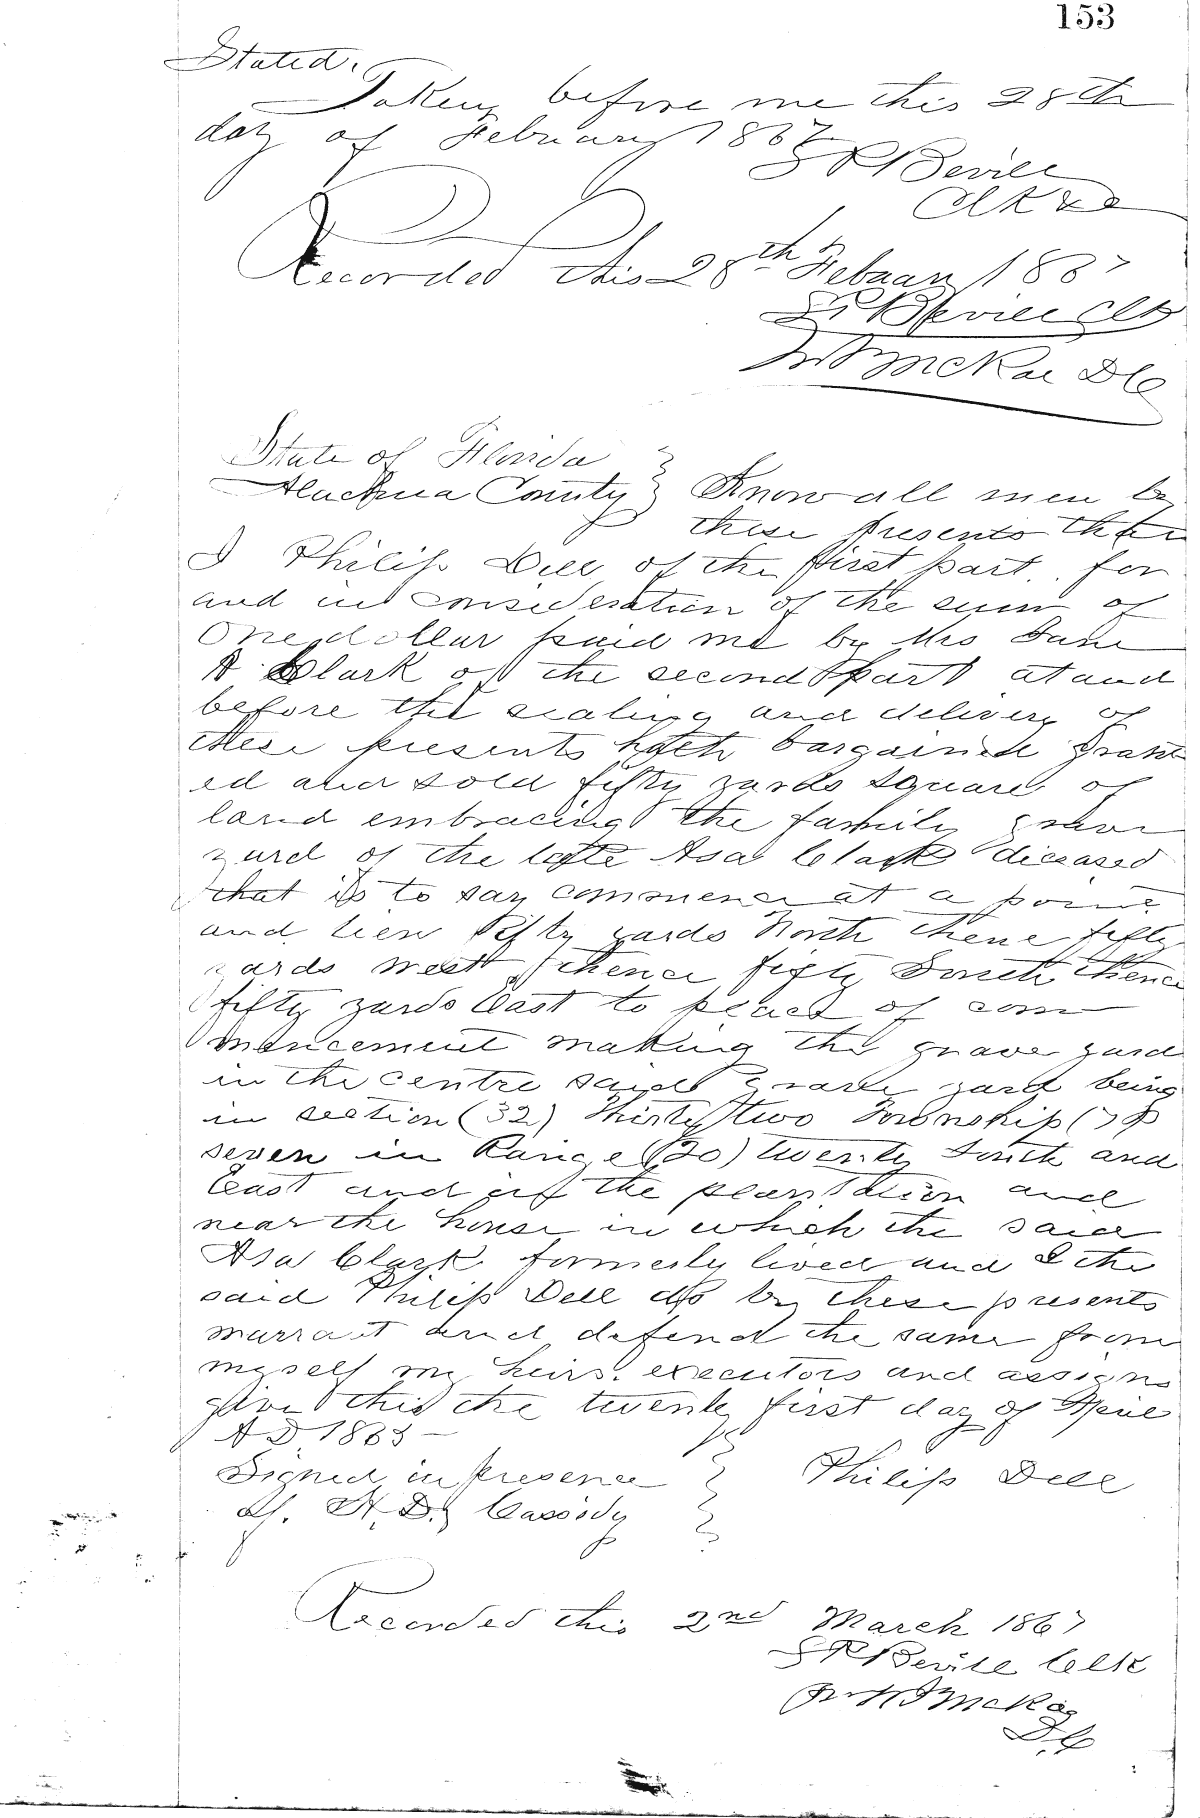 153
Stated.
Taken before me this 28th
day of February 1867
S R Bevill
Clk &c
Recorded this 28th Febuary 1867
S R Bevill Clk
McRae D C
State of Florida }
Alachua County } Know all men by
these presents that
I Philip Dell of the first part. for
and in consideration of the sum of
One dollar paid me by Mrs Jane
A Clark of the second part at and
before the sealing and delivery of
these presents hath bargained grant
ed and sold fifty yards square of
land embracing the family grave
yard of the late Asa Clark diceased
that is to say commence at a point
and fifty yards North thence fifty
yards west thence fifty South thence
fifty yards East to place of com
mencement making the grave yard
in the centre said grave yard being
in section (32) Thirty two Township (7)
seven in Range (20) twenty South and
East and of the plantation and
near the house in which the said
Asa Clark formerly lived and I the
said Philip Dell do by these presents
warrant and defend the same from
myself my heirs. executors and assigns
give this the twenty first day of April
A D 1863
Signed in presence } Philip Dell
of. H. D. Cassidy
Recorded this 2nd March 1867
S R Bevill Clk
McRae
D. C